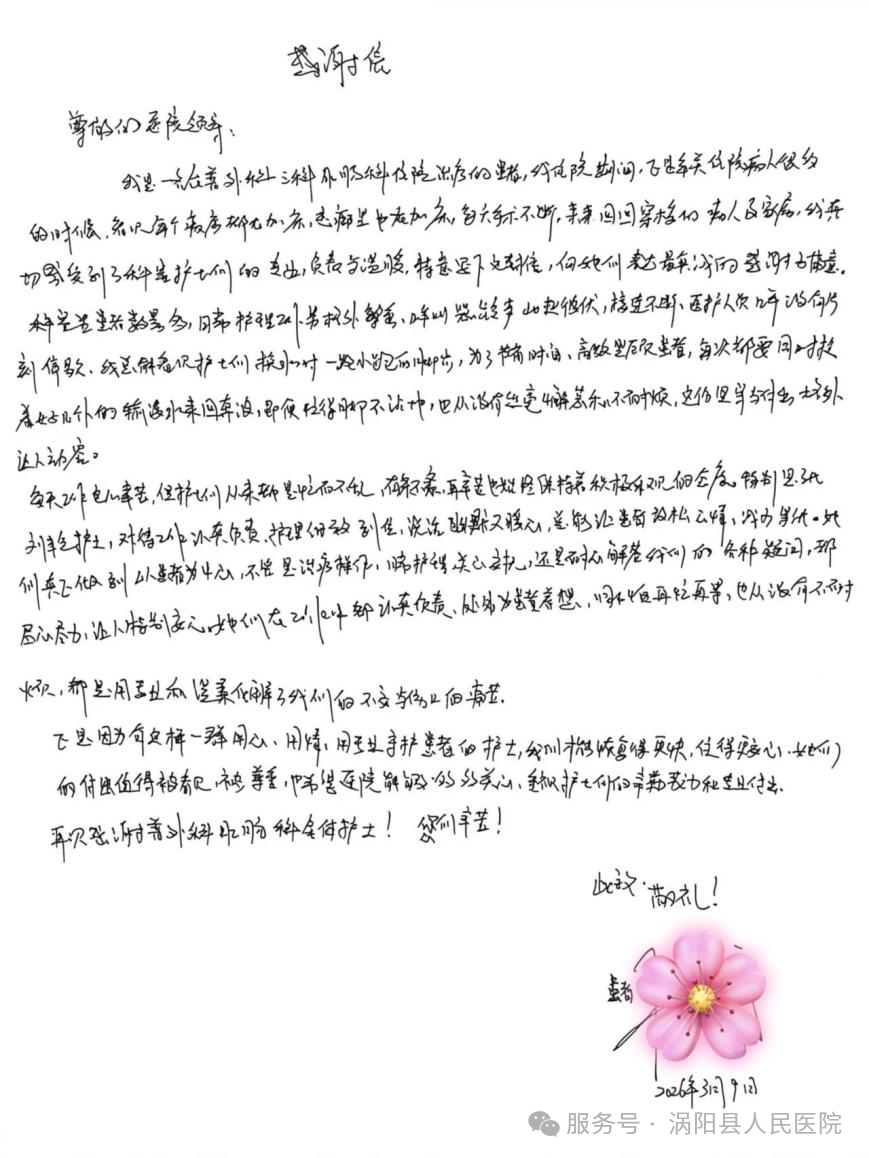 感谢信
尊敬的们医院领导：
我是一名在普外科三科肛肠科住院治疗的患者，我住院期间，正是每天住院病人很多
的时候，看见每个病房都尤加床，走廊里也在加床，每天手术不断，来来回回穿梭的病人及家属，我真
切感受到了科室护士们的专业，负责与温暖，特意写下这封信，向她们表达最真诚的感谢与敬意。
科室里患者数量多，日常护理工作劳格外繁重，呼叫器铃声此起彼伏，接连不断，医护人员几乎没有片
刻停歇。我总能看见护士们换水时一路小跑的脚步，为了节省时间、高效照顾患者，每次都要同时拔
着好几个的输液水来回奔波，即便忙得脚不沾地，也从没有丝毫懈怠和不耐烦，这份坚守与付出，格外
让人动容。
每天工作虽辛苦，但护士们从来都是忙而不乱，有条不紊，再辛苦也始终保持着积极乐观的态度，特别是
刘 护士，对待工作认真负责，护理细致到位，说话幽默又暖心，总能让患者放松心情，减少焦虑。她
们真正做到以患者为中心，不管是治疗操作，日常护理关心交代，还是耐心解答我们的各种疑问，都
尽心尽力，让人特别安心，她们在工作中都认真负责、处处为患者着想，哪怕再忙再累，也从没有不耐
烦，都是用专业和温柔化解了我们的不安与身上的痛苦。
正是因为有这样一群用心、用情，用专业守护患者的护士，我们才能恢复得更快，住得更安心，她们
的付出值得被看见，被尊重，也希望医院能够 多关心、重视护士们的辛勤劳动和专业付出。
再次感谢普外科肛肠科全体护士！ 您们辛苦！
此致·敬礼！
患者
2026年3月9日
服务号 · 涡阳县人民医院